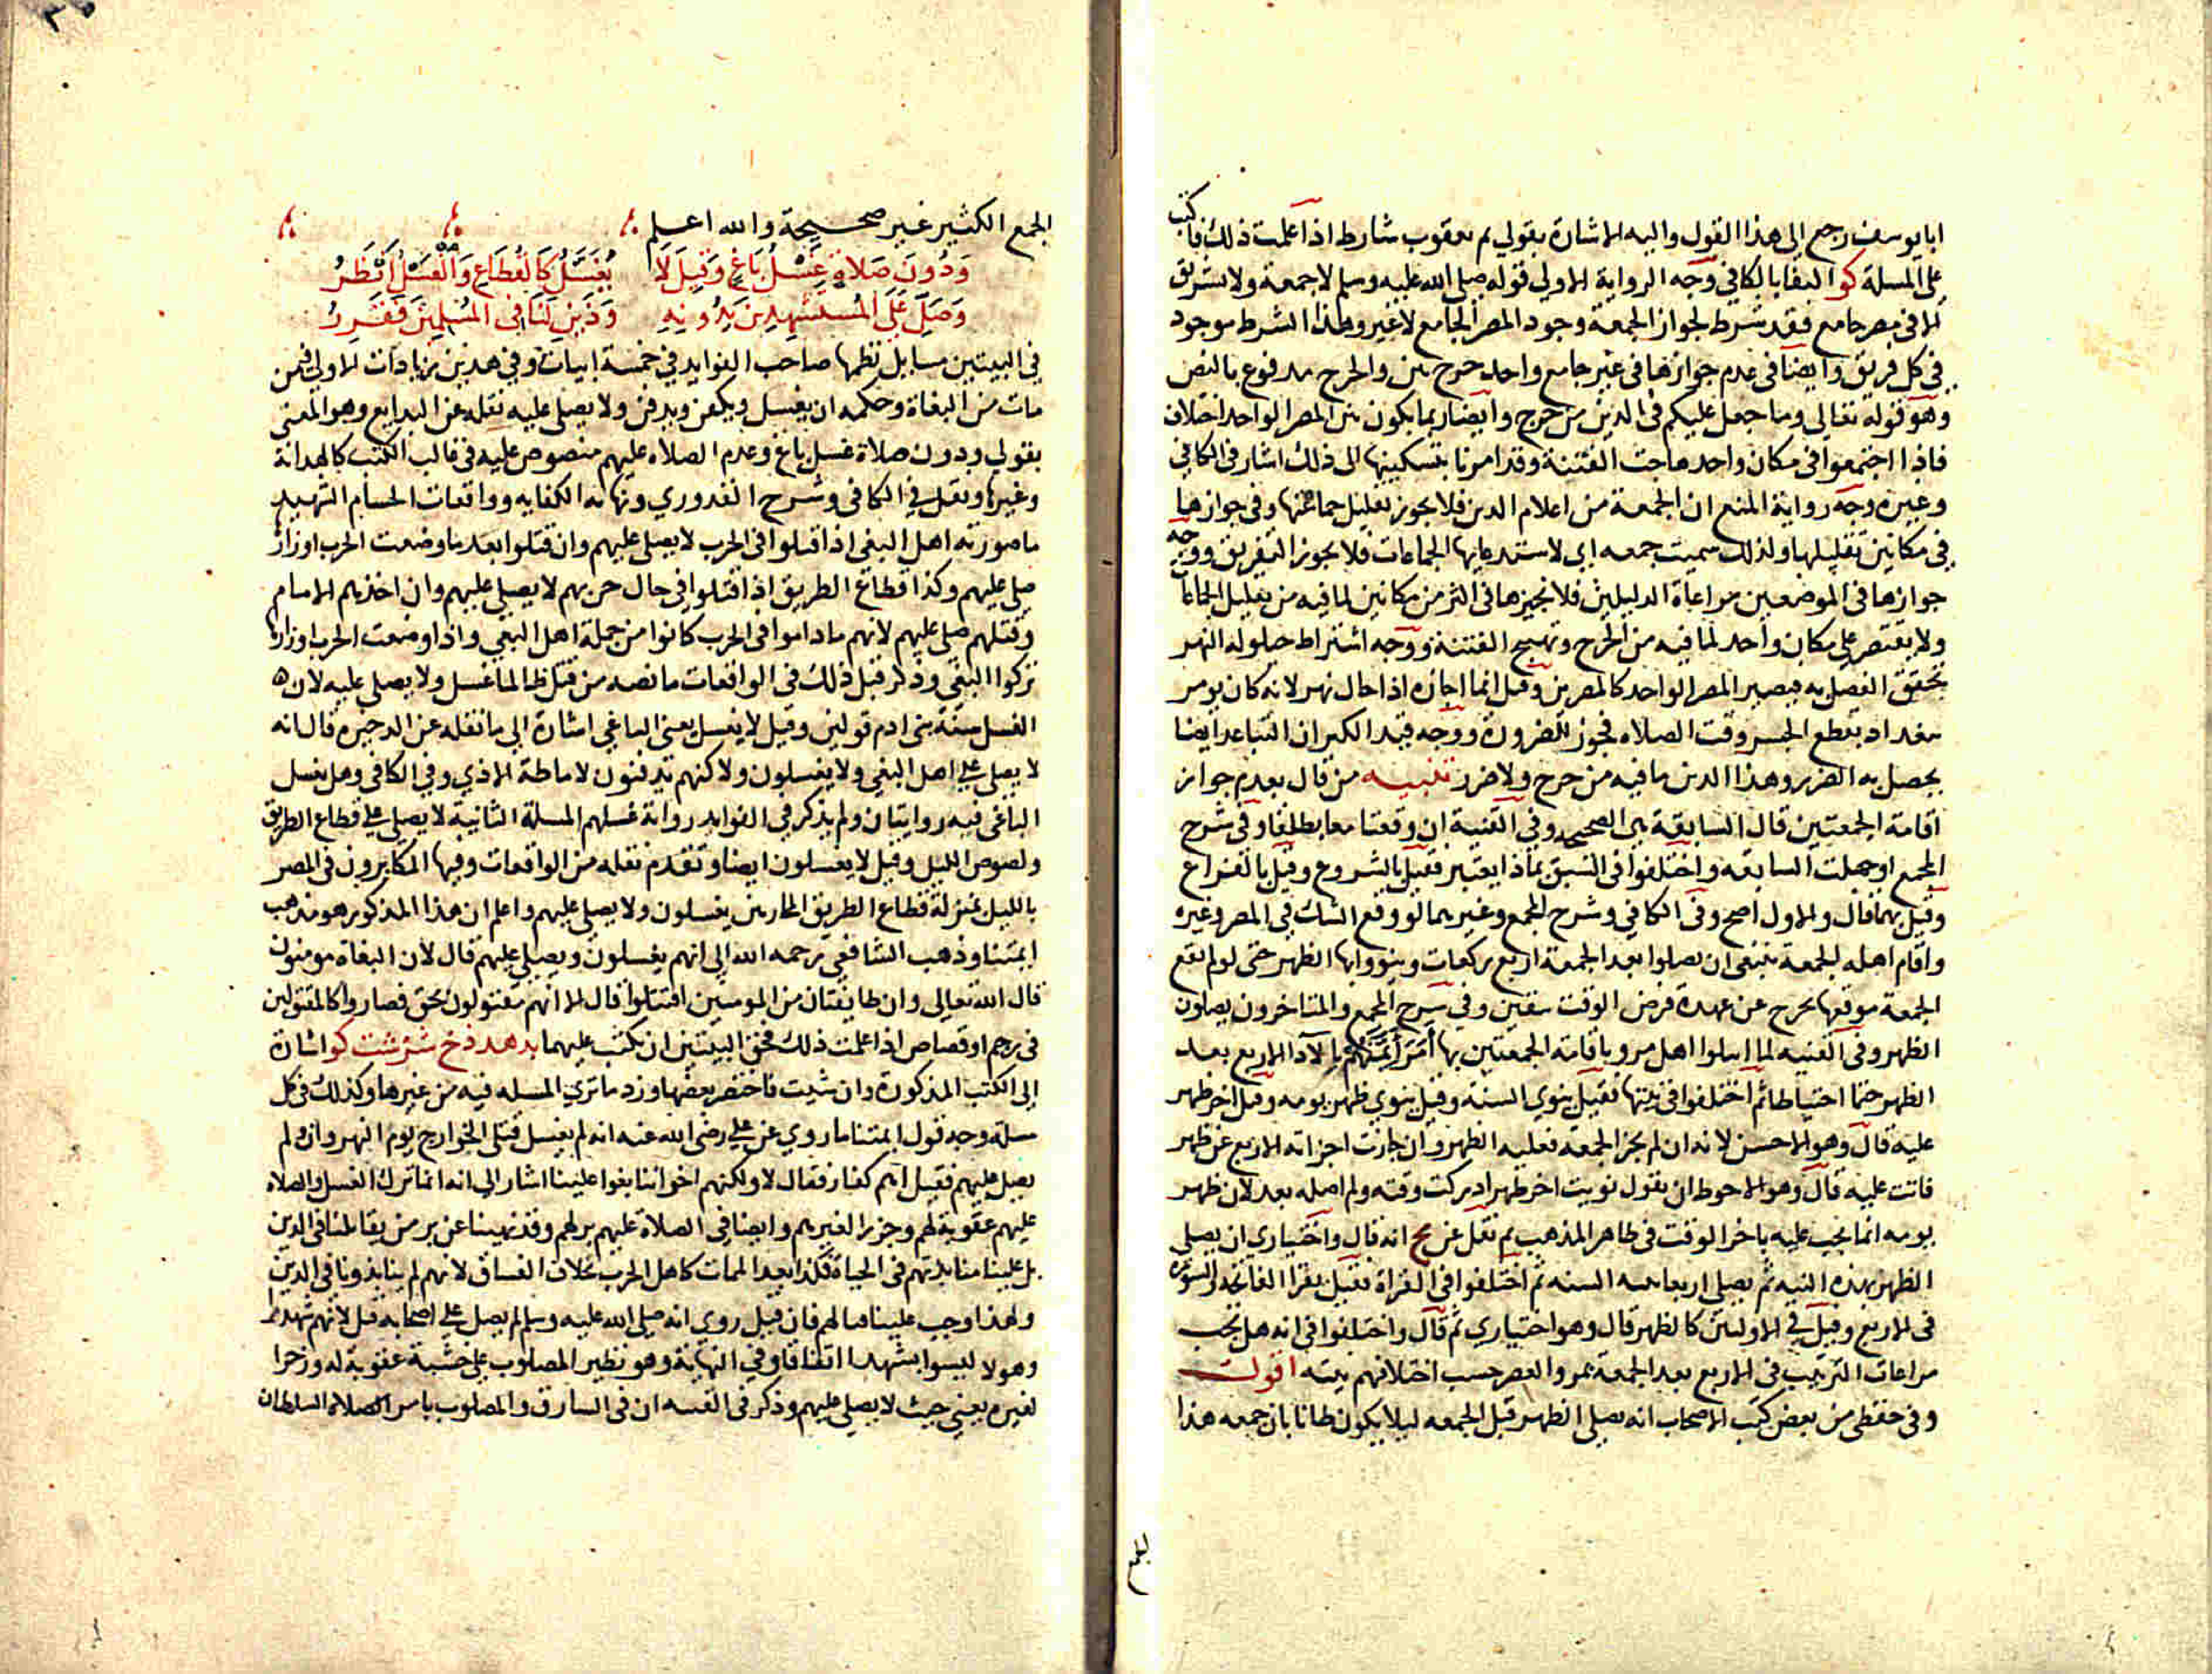 ابايوسف رجع الى هذا القول واليه الاشارة بقولي ثم يعقوب شارط اذا علمت ذلك فاكتب
على المسلة كو البغايا الكافي وجه الرواية الاولي قوله صلى الله عليه وسلم لا جمعة ولا تشريق
الا في مصر جامع فقد شرط لجواز الجمعة وجود المصر الجامع لا غير وهذا الشرط موجود
في كل فريق وايضا في عدم جوازها في غير جامع واحد حرج بين والحرج مدفوع بالنص
وهو قوله تعالي وما جعل عليكم في الدين من حرج وايضا ربما يكون بين المصر الواحد اختلاف
فاذا اجتمعوا في مكان واحد هاجت الفتنة وقد امرنا بتسكينها الى ذلك اشار في الكافي
وغيره وجه رواية المنع ان الجمعة من اعلام الدين فلا يجوز تقليل جماعتها وفي جوازها
في مكانين تقليلها ولذلك سميت جمعه اي لاستدعايها الجماعات فلا يجوز التفريق ووجه
جوازها في الموضعين مراعاة الدليلين فلا نجيزها في اكثر من مكانين لما فيه من تقليل الجماعات
ولا يقتصر على مكان واحد لما فيه من الحرج وتهييج الفتنة ووجه اشتراط حلولة النهر
تحقق الفصل به فيصير المصر الواحد كالمصرين وقيل انما اجازه اذا حال نهر لانه كان يومر
ببغداد بقطع الجسر وقت الصلاه فجوز للضرورة ووجه قيد الكبر ان التباعد ايضا
يحصل به الضرر وهذا الدين ما فيه من حرج ولا ضرر تنبيه من قال بعدم جواز
اقامة الجمعتين قال السابقة هي الصحيحه وفي القنية ان وقعتا معا بطلتا وفي شرح
المجمع او جهلت السابقه واختلفوا في السبق بماذا يعتبر فقيل بالشروع وقيل بالفراغ
وقيل بهما قال والاول اصح وفي الكافي وشرح المجمع وغيرهما لو وقع الشك في المصر وغيره
واقام اهله الجمعة ينبغي ان يصلوا بعد الجمعة اربع ركعات وينووا بها الظهر حتى لو لم تقع
الجمعة موقعها يخرج عن عهدة فرض الوقت بيقين وفي شرح المجمع والمتاخرون يصلون
الظهر وفي القنيه لما ابتلوا اهل مرو باقامة الجمعتين بها امر ائمتهم بالاداء الاربع بعد
الظهر حتما احتياطا ثم اختلفوا في نيتها فقيل ينوي السنة وقيل ينوي ظهر يومه وقيل اخر ظهر
عليه قال وهو الاحسن لانه ان لم يجز الجمعة فعليه الظهر وان جازت اجزاته الاربع عن ظهر
فائت عليه قال وهو الاحوط ان يقول نويت اخر ظهر ادركت وقته ولم اصله بعد لان ظهر
يومه انما يجب عليه باخر الوقت في ظاهر المذهب ثم نقل عن بح انه قال واختياري ان يصلي
الظهر بهذه النيه ثم يصلي اربعا بنيه السنه ثم اختلفوا في القراة فقيل يقرا الفاتحة والسورة
في الاربع وقيل في الاوليتين كالظهر قال وهو اختياري ثم قال واختلفوا في انه هل يجب
مراعات الترتيب في الاربع بعد الجمعه بمرو العصر حسب اختلافهم بنيته اقول
وفي حفظي من بعض كتب الاصحاب انه يصلي الظهر قبل الجمعه ليلا يكون ظانا بان جمعه هذا
لجمع
الجمع الكثير غير صحيحة والله اعلم
وَدُونَ صَلاةٍ غَسْلُ بَاغٍ وَقِيلَ لَا يُغَسَّلُ كَالقُطَاعِ وَالْغَسْلُ اَنْظَرُ
وَصَلِّ عَلَي المُسْتَشْهِدِينَ بِدُونِهِ وَذَيْنِ لَنَا فِي المُسْلِمِينَ فَقَرِّرُ
في البيتين مسايل نظمها صاحب الفوايد في خمسة ابيات وفي هذين زيادات الاولى فيمن
مات من البغاة وحكمه ان يغسل ويكفن ويدفن ولا يصلى عليه نقله عن البدايع وهو المعني
بقولي ودون صلاة غسل باغ وعدم الصلاه عليهم منصوص عليه في غالب الكتب كالهداية
وغيرها ونقل في الكافي وشرح القدوري ونهاية الكفايه وواقعات الحسام الشهيد
ما صورته اهل البغي اذا قتلوا في الحرب لا يصلى عليهم وان قتلوا بعد ما وضعت الحرب اوزار
صلى عليهم وكذا قطاع الطريق اذا قتلوا في حال حربهم لا يصلى عليهم وان اخذهم الامام
وقتلهم صلى عليهم لانهم ماداموا في الحرب كانوا من جملة اهل البغي واذا وضعت الحرب اوزارها
تركوا البغي وذكر قبل ذلك في الواقعات ما نصه من قتل ظالما غسل ولا يصلى عليه لان
الغسل سنة بني ادم قولين وقيل لا يغسل يعني الباغي اشارة الى ما نقله عن الدخيره قال انه
لا يصلى على اهل البغي ولا يغسلون ولاكنهم يدفنون لاماطة الاذي وفي الكافي وهل يغسل
الباغي فيه روايتان ولم يذكر في الفوايد رواية غسلهم المسلة الثانية لا يصلى على قطاع الطريق
ولصوص الليل وقيل لا يغسلون ايضا وتقدم نقله من الواقعات وفيها المكابرون في المصر
بالليل بمنزلة قطاع الطريق المحاربين يغسلون ولا يصلى عليهم واعلم ان هذا المذكور هو مذهب
ايمتنا وذهب الشافعي رحمه الله الى انهم يغسلون ويصلى عليهم قال لان البغاة مومنون
قال الله تعالى وان طايفتان من المومنين اقتتلوا قال الا انهم مقتولون بحق فصاروا كالمقتولين
في رجم او قصاص اذا علمت ذلك فحق البيتين ان تكتب عليهما بد هد ذخ شر شت كو اشارة
الى الكتب المذكورة وان شيت فاختصر بعضها وزد ما تري المسله فيه من غيرها وكذلك في كل
مسلة وجه قول ايمتنا ما روي عن علي رضى الله عنه انه لم يغسل قتلى الخوارج يوم النهروان ولم
يصل عليهم فقيل اهم كفار فقال لا ولكنهم اخواننا بغوا علينا اشار الى انه انما ترك الغسل والصلاه
عليهم عقوبة لهم وجزرا لغيرهم وايضا في الصلاة عليهم بر لهم وقد نهينا عن بر من يقاتلنا في الدين
بل علينا منابذتهم في الحياة فكذا بعد الممات كاهل الحرب بخلاف الفساق لانهم لم ينابذونا في الدين
ولهذا وجب علينا قتالهم فان قيل روي انه صلى الله عليه وسلم لم يصل على اصحابه قيل لانهم شهدا
وهولا ليسوا بشهدا اتفاقا وفي النهاية وهو نظير المصلوب على خشبة عقوبة له وزجرا
لغيره يعني حيث لا يصلى عليهم وذكر في القنيه ان في السارق والمصلوب بامر السلطان